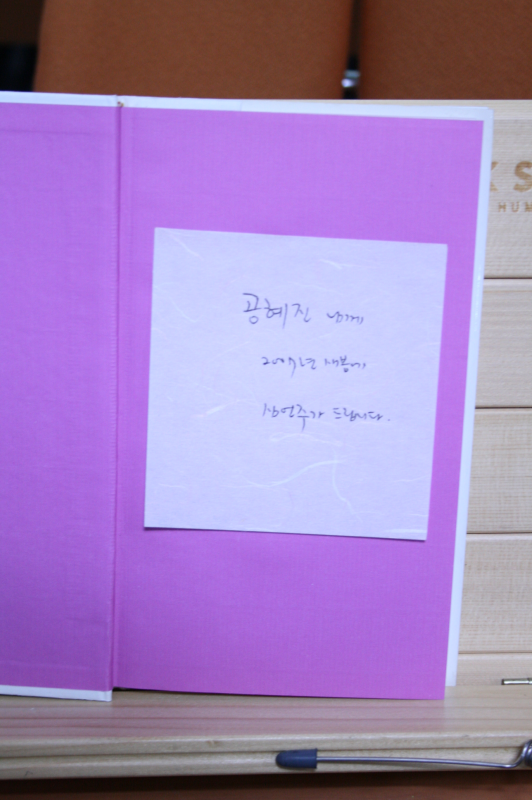 공혜진 님께
2007년 새봄에
드립니다.
K S
HUM